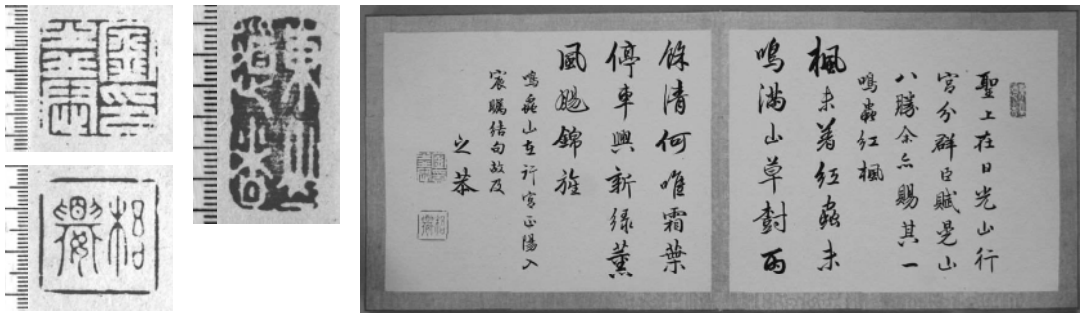 聖上在日光山行
宮分群臣賦晃山
八勝余亦賜其一
鳴蟲紅楓
楓未着紅蟲未
鳴満山草樹雨
餘清何唯霜葉
停車興新緑薫
風颺錦旌
鳴蟲山在行宮正陽入
宸矚結句故及
之恭